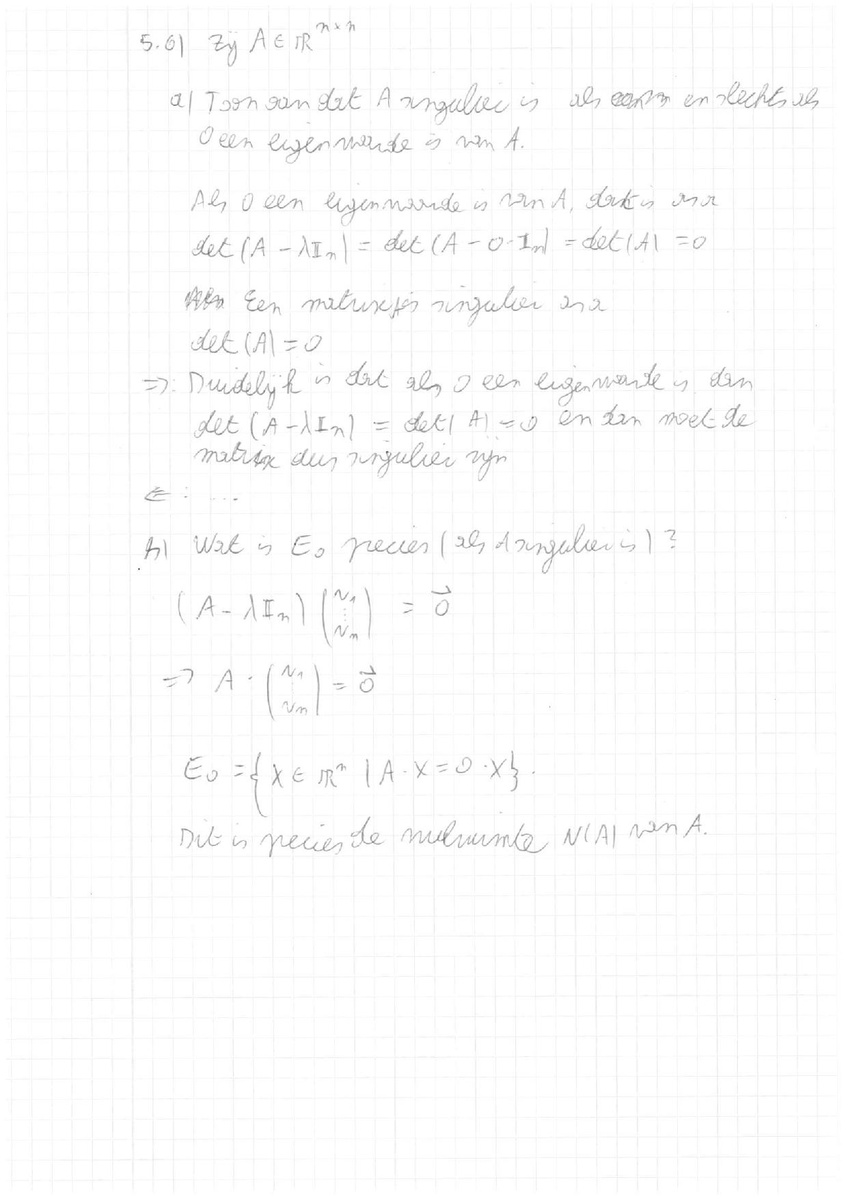 5.6) Zij A ∈ ℝ^{n×n}
a) Toon aan dat A singulier is als en slechts als
0 een eigenwaarde is van A.
Als 0 een eigenwaarde is van A, dat is asa
det(A - λIₙ) = det(A - 0·Iₙ) = det(A) = 0
Een matrix is singulier asa
det(A) = 0
⇒: Duidelijk is dat als 0 een eigenwaarde is, dan
det(A - λIₙ) = det(A) = 0 en dan moet de
matrix dus singulier zijn
⇐: ...
b) Wat is E₀ precies (als A singulier is)?
(A - λIₙ) (v₁ ⋮ vₙ) = 0⃗
⇒ A · (v₁ vₙ) = 0⃗
E₀ = {X ∈ ℝⁿ | A·X = 0·X}.
Dit is precies de nulruimte N(A) van A.